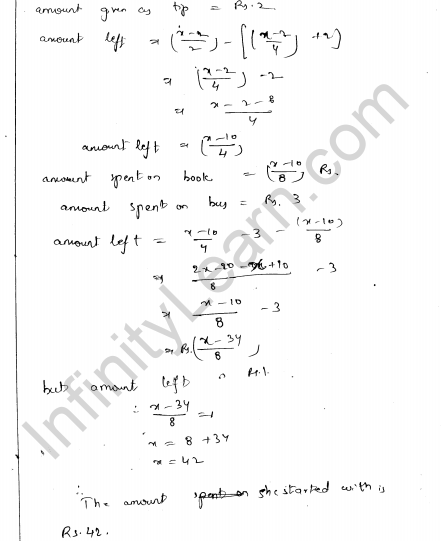 amount given as tip = Rs. 2
amount left ⇒ (x-2/2) - [(x-2/4) +2)
⇒ (x-2/4) -2
= x-2-8/4
amount left = (x-10/4)
amount spent on book = (x-10/8) Rs.
amount spent on bus = Rs. 3
amount left = x-10/4 -3 - (x-10)/8
⇒ 2x-20-x+10/8 -3
⇒ x-10/8 -3
⇒ Rs. (x-34/8)
but amount left Rs. 1.
∴ x-34/8 = 1
x = 8 +34
x = 42
∴ The amount she started with is
Rs. 42.
InfinityLearn.com